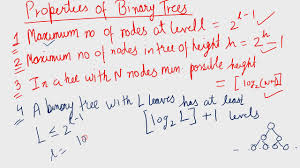 Properties of Binary Trees
1 Maximum no of nodes at level l = 2^{l-1}
2 Maximum no of nodes in tree of height h = 2^h - 1
3 In a tree with N nodes min possible height
= ⌈log₂(N+1)⌉
4 A binary tree with L leaves has at least
⌈log₂ L⌉ + 1 levels
L ≤ 2^{l-1}
l =